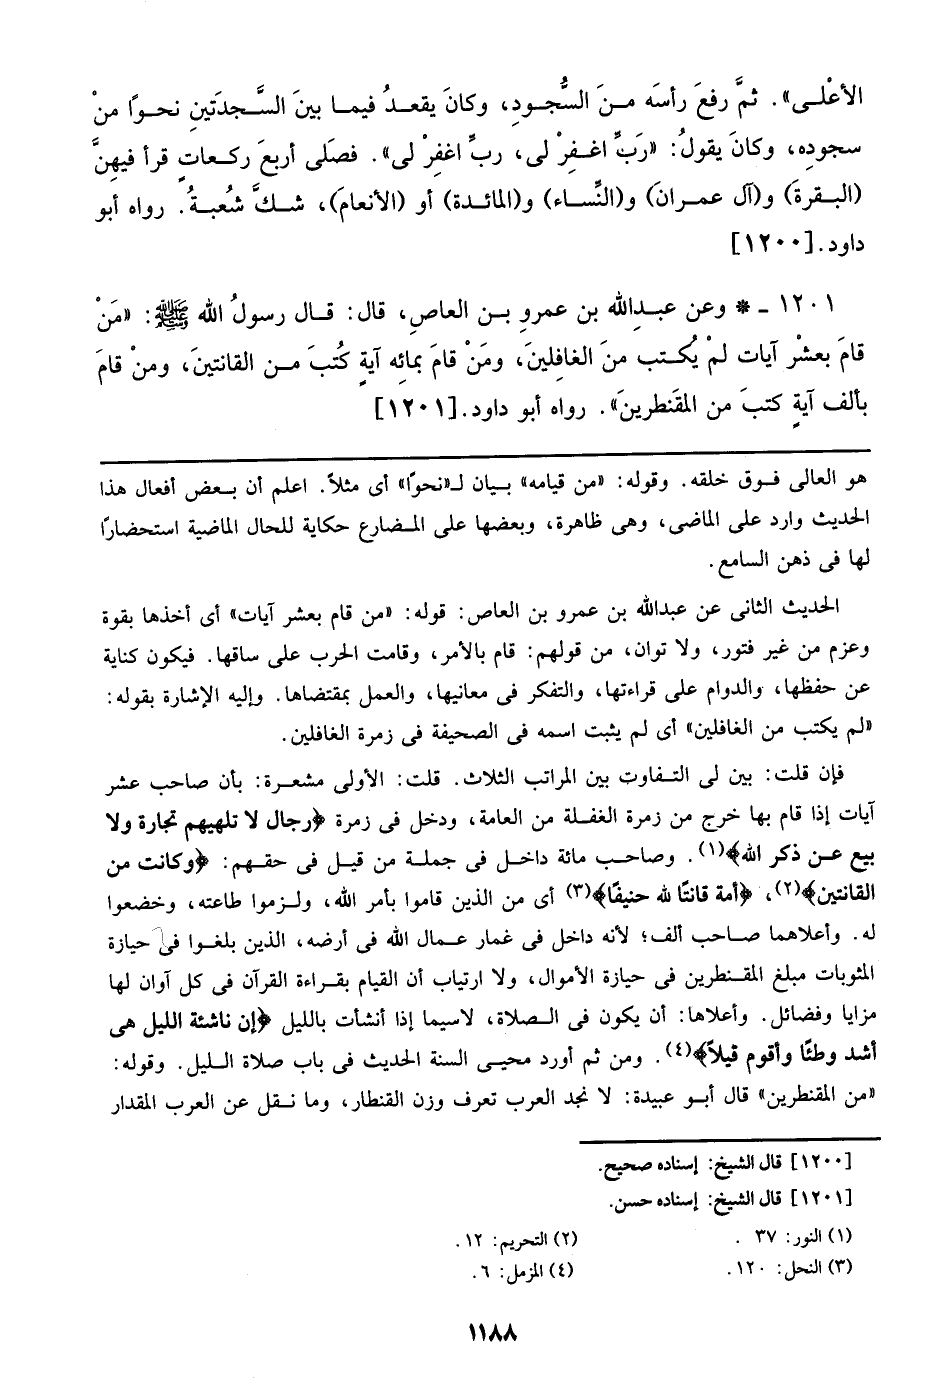 الأعْلـى». ثمَّ رفعَ رأسَه مـنَ السُّجـودِ، وكانَ يقعـدُ فيمـا بينَ السَّـجدَتينِ نحـوًا منْ
سجودِه، وكانَ يقولُ: «رَبِّ اغـفـِرْ لى، ربِّ اغفِرْ لى». فصلَى أربعَ ركـعاتٍ قرأ فيهِنَّ
(البـقرةَ) و(آل عمـرانَ) و(النِّسـاء) و(المائـدة) أو (الأنعامَ)، شـكَّ شُعبـةُ. رواه أبو
داود.[١٢٠٠]
١٢٠١ - * وعن عبـدِالله بن عمروِ بـن العاصِ، قال: قـال رسولُ الله ﷺ: «مَنْ
قامَ بعشْرِ آيات لمْ يُكـتب منَ الغافِلينَ، ومَنْ قامَ بمائه آيةٍ كُتبَ مـن القانتينَ، ومنْ قامَ
بألف آيةٍ كتبَ من المقَنطرينَ». رواه أبو داود.[١٢٠١]
هو العالى فـوق خلقه. وقوله: «من قيامه» بيان لـ«نحوًا» أى مثلاً. اعلم أن بـعض أفعال هذا
الحديث وارد على الماضى، وهى ظاهرة، وبعضها على المـضارع حكاية للحال الماضية استحضارًا
لها فى ذهن السامع.
الحديث الثانى عن عبدالله بن عمرو بن العاص: قوله: «من قام بعشر آيات» أى أخذها بقوة
وعزم من غير فتور، ولا توان، من قولهم: قام بالأمر، وقامت الحرب على ساقها. فيكون كناية
عن حفظها، والدوام على قراءتها، والتفكر فى معانيها، والعمل بمقتضاها. وإليه الإشارة بقوله:
«لم يكتب من الغافلين» أى لم يثبت اسمه فى الصحيفة فى زمرة الغافلين.
فإن قلت: بين لى التـفاوت بين المراتب الثلاث. قلت: الأولى مشعـرة: بأن صاحب عشر
آيات إذا قام بها خرج من زمرة الغفـلة من العامة، ودخل فى زمرة ﴿رجال لا تلهيهم تجارة ولا
بيع عـن ذكر الله﴾(١). وصاحـب مائة داخـل فى جملـة من قيـل فى حقـهم: ﴿وكانت من
القانتين﴾(٢)، ﴿أمة قانتًا لله حنيفًا﴾(٣) أى من الذين قاموا بأمر الله، ولـزموا طاعته، وخضعوا
له. وأعلاهمـا صـاحب ألف؛ لأنه داخل فى غمار عـمال الله فى أرضه، الذين بلغـوا فى حيازة
المثوبات مبلغ المقـنطرين فى حيازة الأموال، ولا ارتياب أن القيام بقـراءة القرآن فى كل آوان لها
مزايا وفضائل. وأعلاها: أن يكون فى الـصلاة، لاسيما إذا أنشأت بالليل ﴿إن ناشئة الليل هى
أشد وطئًا وأقوم قيلاً﴾(٤). ومن ثم أورد محيـى السنة الحديث فى باب صلاة الـليل. وقوله:
«من المقنطرين» قال أبـو عبيدة: لا نجد العرب تعرف وزن القنطار، وما نـقل عن العرب المقدار
[١٢٠٠] قال الشيخ: إسناده صحيح.
[١٢٠١] قال الشيخ: إسناده حسن.
(١) النور: ٣٧ . (٢) التحريم: ١٢.
(٣) النحل: ١٢٠. (٤) المزمل: ٦.
١١٨٨